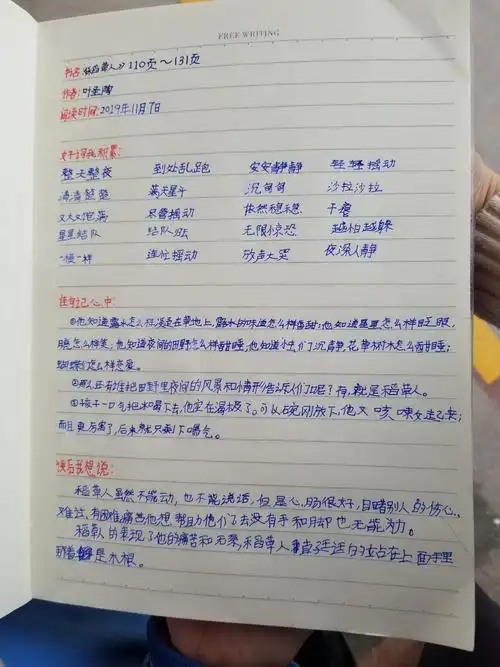 FREE WRITING
书名:《稻草人》110页~131页
作者:叶圣陶
阅读时间:2019年11月7日
好词我积累:
整天整夜 到处乱跑 安安静静 轻轻摇动
清清楚楚 满天星斗 沉甸甸 沙拉沙拉
又大又饱满 尽管摇动 依然稳稳 干瘪
星星结队 结队 无限惊恐 越怕越躲
一模一样 连忙摇动 放声大哭 夜深人静
佳句记心中:
①他知道露水怎么样凝在草地上,露水的味道怎么样香甜;他知道星星怎么样眨眼,
月亮怎么样笑;他知道夜间的田野怎么样甜睡,他知道小虫们沉静,花草树木怎么酣睡;
蝴蝶们怎么样恋爱。
②那么还有谁把田野里夜间的风景和情形告诉人们呢?有,就是稻草人。
③孩子一口气把水喝下去,他实在渴极了。可以碗刚放下,他又咳嗽起来;
而且更厉害了,后来就只剩下喘气。
读后我想说:
稻草人虽然不能动,也不能说话,但是心肠很大好,目睹别人的伤心、
难过、有困难痛苦他想帮助他们了去没有手和脚却也无能为力。
稻草人的表现了他的痛苦和无奈,稻草人直立站在上面手里
是木根。